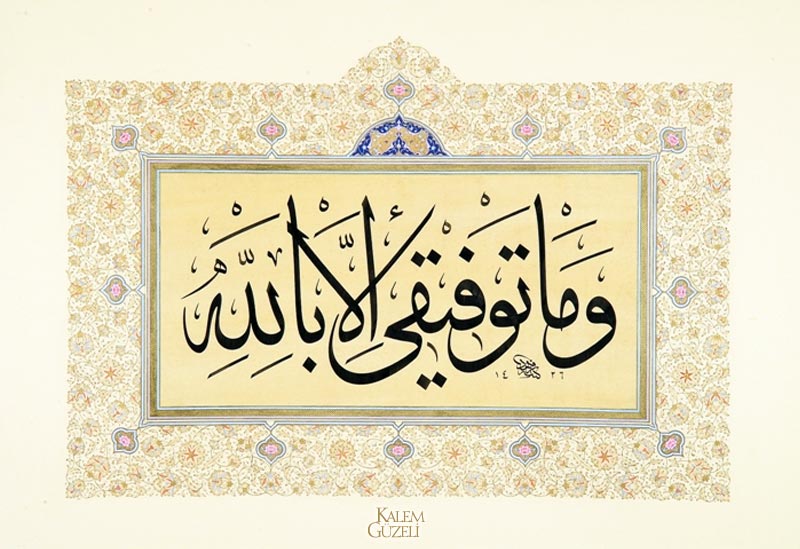 وَمَا تَوْفِيقِى إِلَّا بِاللَّهِ
١٤٢٦
KALEM
GÜZELİ